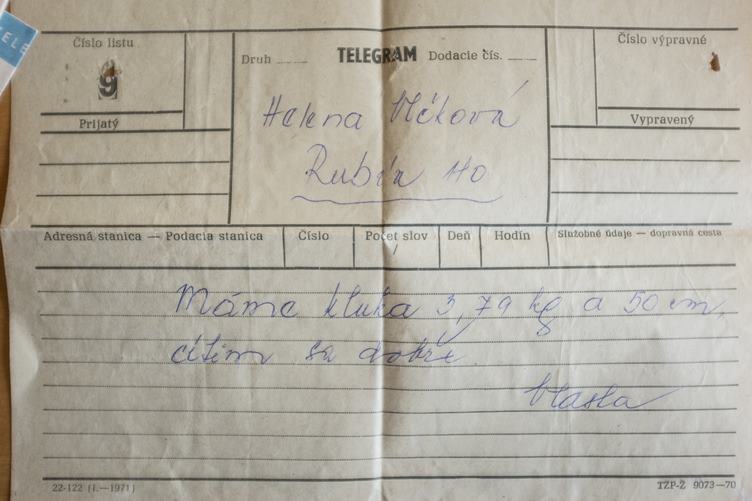 TELE
Číslo listu
9
Prijatý
Druh TELEGRAM Dodacie čís.
Číslo výpravné
Vypravený
Helena Vlčková
Rubín HO
Adresná stanica — Podacia stanica Číslo Počet slov / Deň Hodín Služobné údaje — dopravná cesta
Máme kluka 3,79 kg a 50 cm,
cítim sa dobře
Vlasta
22-122 (I.—1971)
TZP-Ž 9073—70